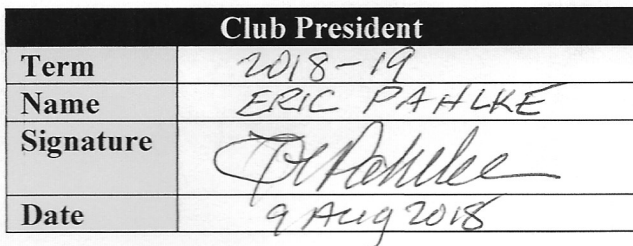 Club President
Term 2018-19
Name ERIC PAHLKE
Signature Pahlke
Date 9 Aug 2018